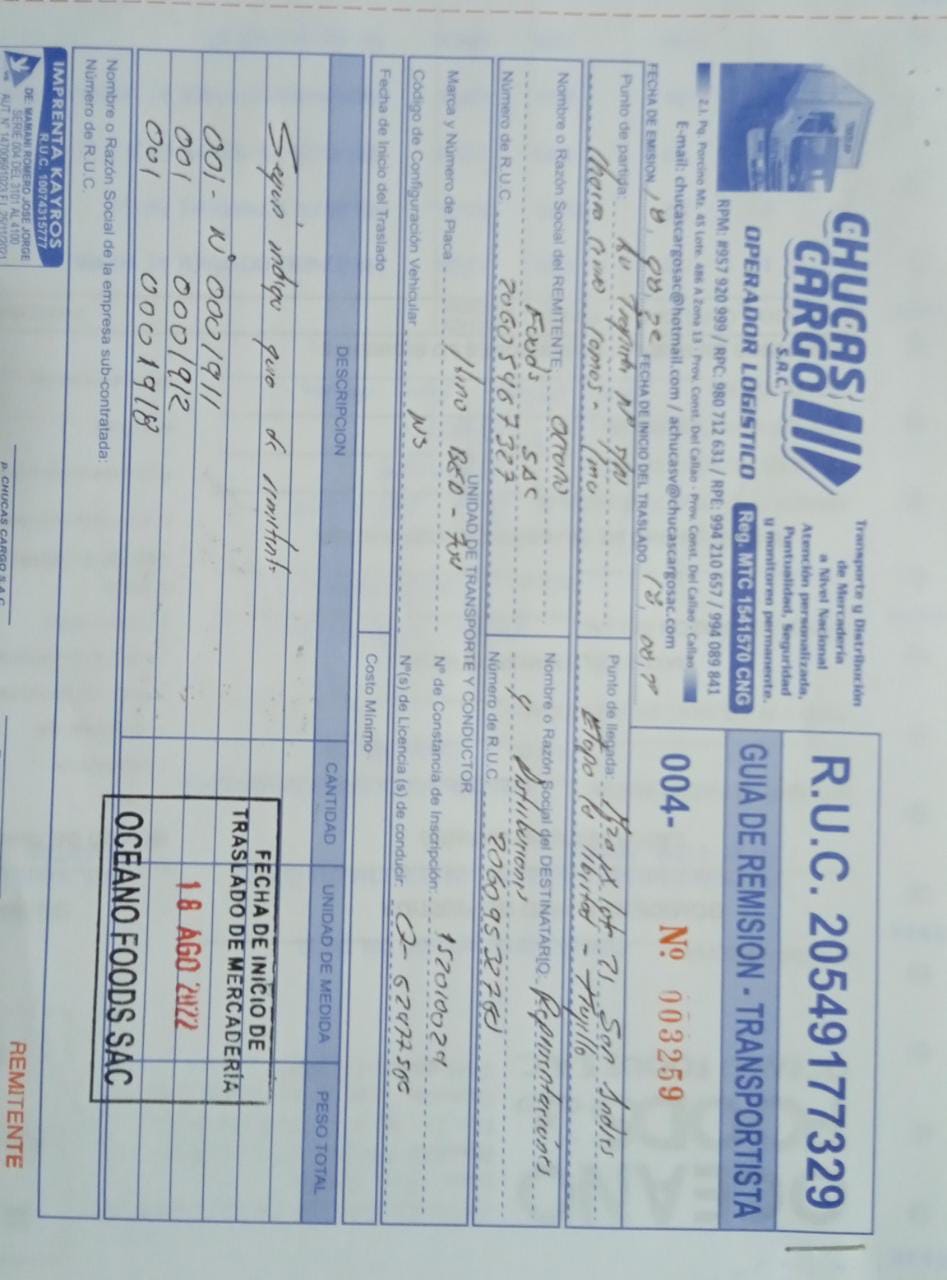 CHUCAS
CARGO
S.A.C.
Transporte y Distribución
de Mercadería
a Nivel Nacional
Atención personalizada,
Puntualidad, Seguridad
y monitoreo permanente.
OPERADOR LOGISTICO
Reg. MTC 1541570 CNG
RPM: #957 920 999 / RPC: 980 712 631 / RPE: 994 210 657 / 994 089 841
Z.I. Pq. Porcino Mz. 45 Lote. 486 A Zona 13 - Prov. Const. Del Callao - Prov. Const. Del Callao - Callao
E-mail: chucascargosac@hotmail.com / achucasv@chucascargosac.com
R.U.C. 20549177329
GUIA DE REMISION - TRANSPORTISTA
004- Nº 003259
FECHA DE EMISION 18, 08, 22 FECHA DE INICIO DEL TRASLADO 18, 08,
Punto de partida:
Punto de llegada: Mza lote 21 San Andres
Etapa - Trujillo
Nombre o Razón Social del REMITENTE: Oceano
Foods SAC
Número de R.U.C.
Nombre o Razón Social del DESTINATARIO: Representaciones
y Distribuciones
Número de R.U.C.
UNIDAD DE TRANSPORTE Y CONDUCTOR
Marca y Número de Placa: Hino
Nº de Constancia de Inscripción:
Código de Configuración Vehicular N3
Nº(s) de Licencia (s) de conducir:
Fecha de Inicio del Traslado
Costo Mínimo
DESCRIPCION CANTIDAD UNIDAD DE MEDIDA PESO TOTAL
Segun indique guia d remitente
001 - Nº 0001911
001 0001912
001 0001918
FECHA DE INICIO DE
TRASLADO DE MERCADERÍA
18 AGO 2022
OCEANO FOODS SAC
Nombre o Razón Social de la empresa sub-contratada:
Número de R.U.C.
IMPRENTA KAYROS
R.U.C. 10074315777
DE: MAMANI ROMERO JOSE JORGE
SERIE 004 DEL 3101 AL 4100
P. CHUCAS CARGO S.A.C.
REMITENTE